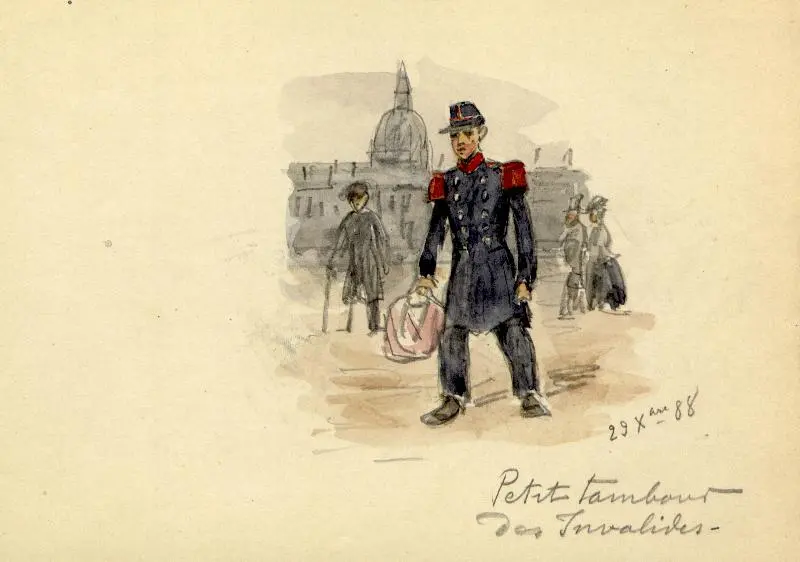 29 Xbre 88
Petit tambour
des Invalides-